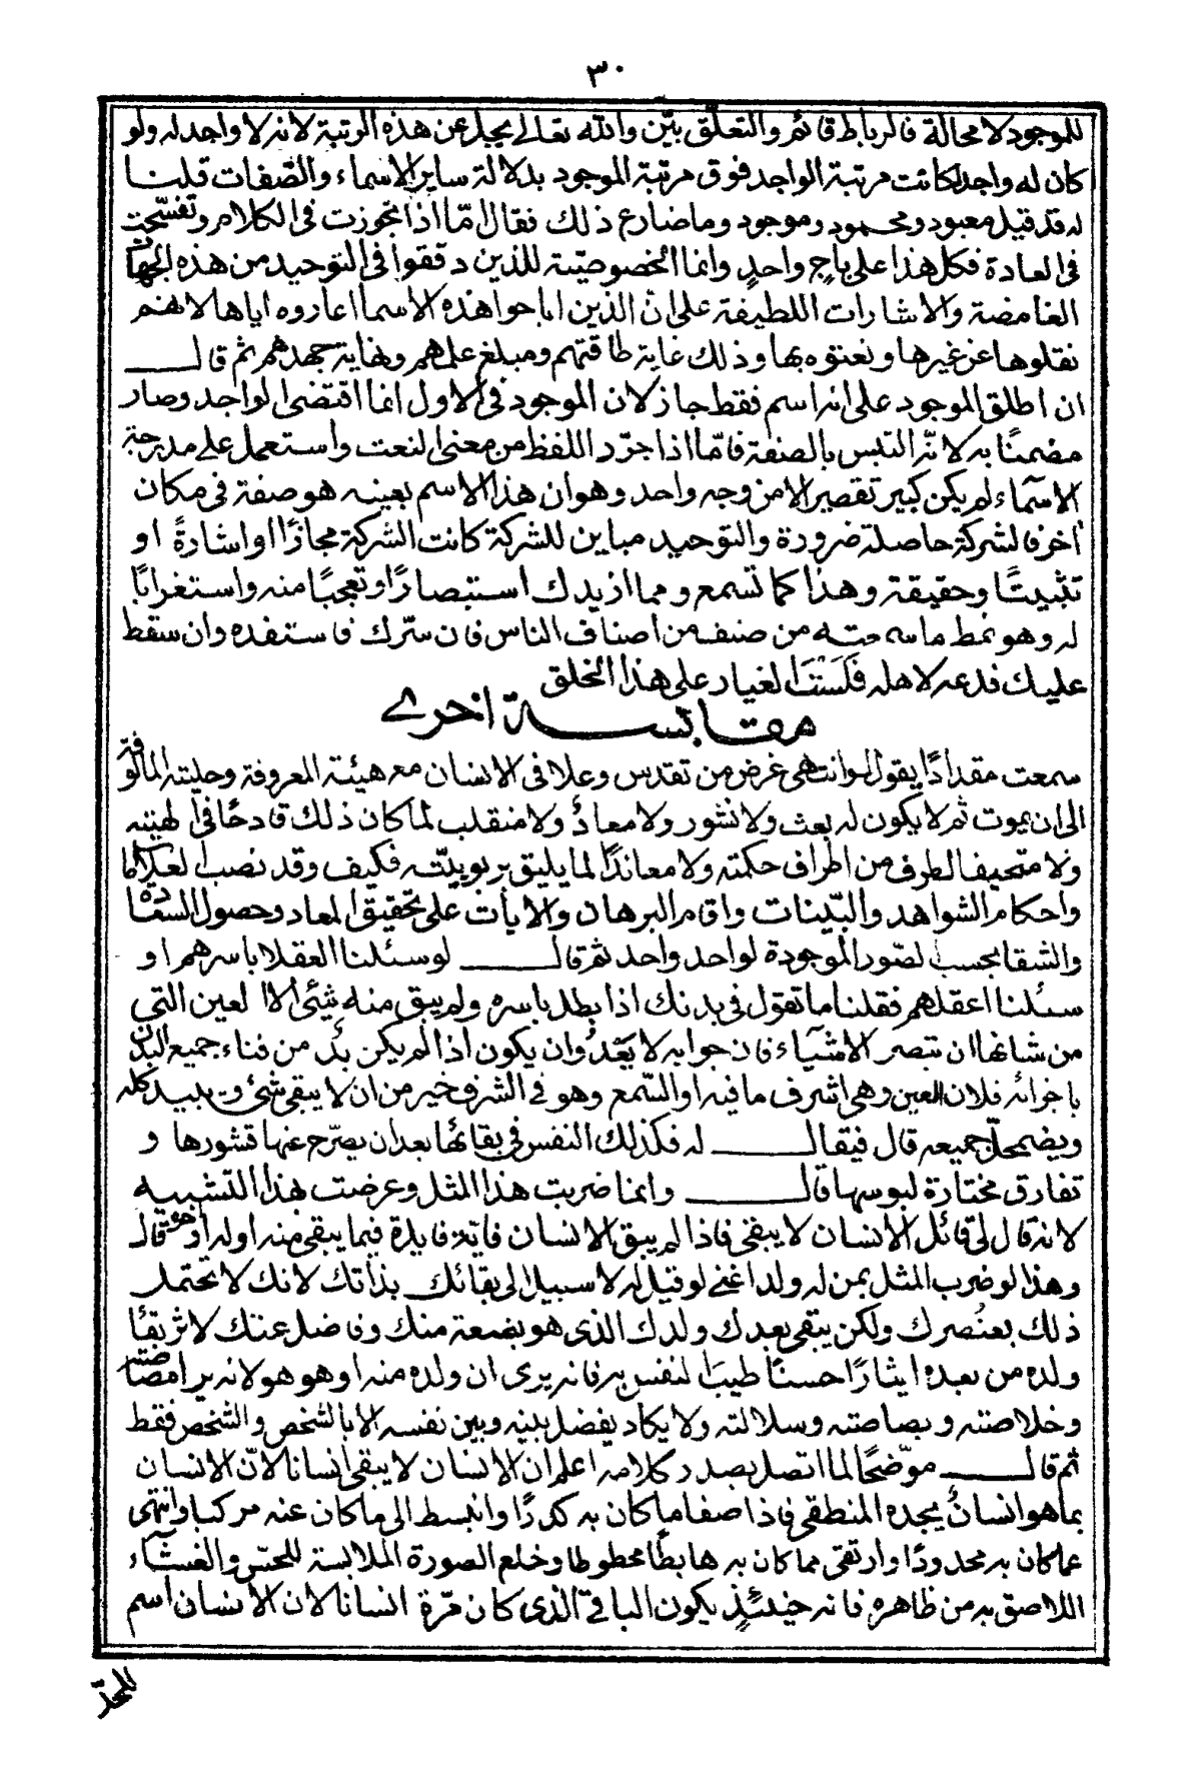 ٣٠
للموجود لا محالة فالرباط قائم والتعلق بيّن والله تعالى يجل عن هذه الرتبة لانه لا واجد له ولو
كان له واجد لكانت مرتبة الواجد فوق مرتبة الموجود بدلالة ساير الاسماء والصّفات قلنا
له قد قيل معبود ومحمود وموجود وما ضارع ذلك فقال امّا اذا تجوزت فى الكلام وتفسّحت
فى العادة فكل هذا على باج واحدٍ وانما الخصوصيّة للذين دققوا فى التوحيد من هذه الجهات
الغامضة والاشارات اللطيفة على انّ الذين اباحوا هذه الاسما اعاروه اياها لانهم
نقلوها عن غيرها ونعتوه بها وذلك غاية طاقتهم ومبلغ علمهم ونهاية جهدهم ثم قال
ان اطلق الموجود على انه اسم فقط جاز لان الموجود فى الاول انما اقتضى الواجد وصار
مضمنًا به لانّه التبس بالصفة فامّا اذا جرّد اللفظ من معنى النعت واستعمل على مدرجة
الاسماء لم يكن كبير تقصير الا من وجه واحد وهو ان هذا الاسم بعينه هو صفة فى مكان
اخر فالشركة حاصلة ضرورة والتوحيد مباين للشركة كانت الشركة مجازًا او اشارةً او
تثبيتًا وحقيقة وهذا كما تسمع ومما ازيدك استبصارًا وتعجبًا منه واستغرابًا
له وهو نمط ما سمعته من صنف من اصناف الناس فان سرّك فاستفده وان سقط
عليك فدعه لاهله فلست الغيار على هذا الخلق
مقابسة اخرى
سمعت مقدادًا يقول لو انتهى غرض من تقدس وعلا فى الانسان مع هيئته المعروفة وحليته المالوفة
الى ان يموت ثم لا يكون له بعث ولا نشور ولا معادٌ ولا منقلب لما كان ذلك قادحًا فى الهيته
ولا متحيفا لطرف من اطراف حكمته ولا معاندًا لما يليق بربوبيّته فكيف وقد نصب العلاما
واحكام الشواهد والبّينات واقام البرهان والايات على تحقيق المعاد وحصول السعادة
والشقا بحسب لصّور الموجودة لواحد واحد ثم قال لو سئلنا العقلا باسرهم او
سئلنا اعقلهم فقلنا ما تقول فى بدنك اذا بطل باسره ولم يبق منه شيئ الا العين التى
من شانها ان تبصر الاشيآء فان جوابه لا يَعْدُو ان يكون اذا لم يكن بدٌ من فناء جميع البدن
باجزائه فلان العين وهى اشرف ما فيه او السّمع وهو فى الشرف خير من ان لا يبقى شئ ويبيد كله
ويضمحلّ جميعه قال فيقال له فكذلك النفس فى بقائها بعد ان يصرّح عنها قشورها و
تفارق مختارة لبوسها قال وانما ضربت هذا المثل وعرضت هذا التشبيه
لانه قال لى قائل الانسان لا يبقى فاذا لم يبق الانسان فاية فايدة فيما يبقى منه او له قال
وهذا لو ضرب المثل بمن له ولد اغنى لو قيل له لا سبيل الى بقائك بذاتك لانك لا تحتمل
ذلك بعنُصرك ولكن يبقى بعدك ولدك الذى هو بضعة منك وفاضل عنك لاثر بقاء
ولده من بعده ايثارًا حسنًا طيبًا لنفس به فانه يرى ان ولده منه او هو هو لانه يرا مصّاصته
وخلاصته وبصاصته وسلالته ولا يكاد يفضل بينه وبين نفسه الا بالشخص والشخص فقط
ثم قال موّضحًا لما اتصل بصدر كلامه اعلم ان الانسان لا يبقى انسانا لانّ الانسان
بما هو انسانٌ يجده المنطقى فاذا صفا ما كان به كدرًا وانبسط الى ما كان عنه مركبا وانتهى
عما كان به محدودًا وارتقى مما كان به هابطًا محطوطا وخلع الصورة الملابسة للحسّ والغشآء
اللاصق به من ظاهره فانه حينئذٍ يكون الباقى الذى كان مّرة انسانا لان الانسان اسم
للحدّ